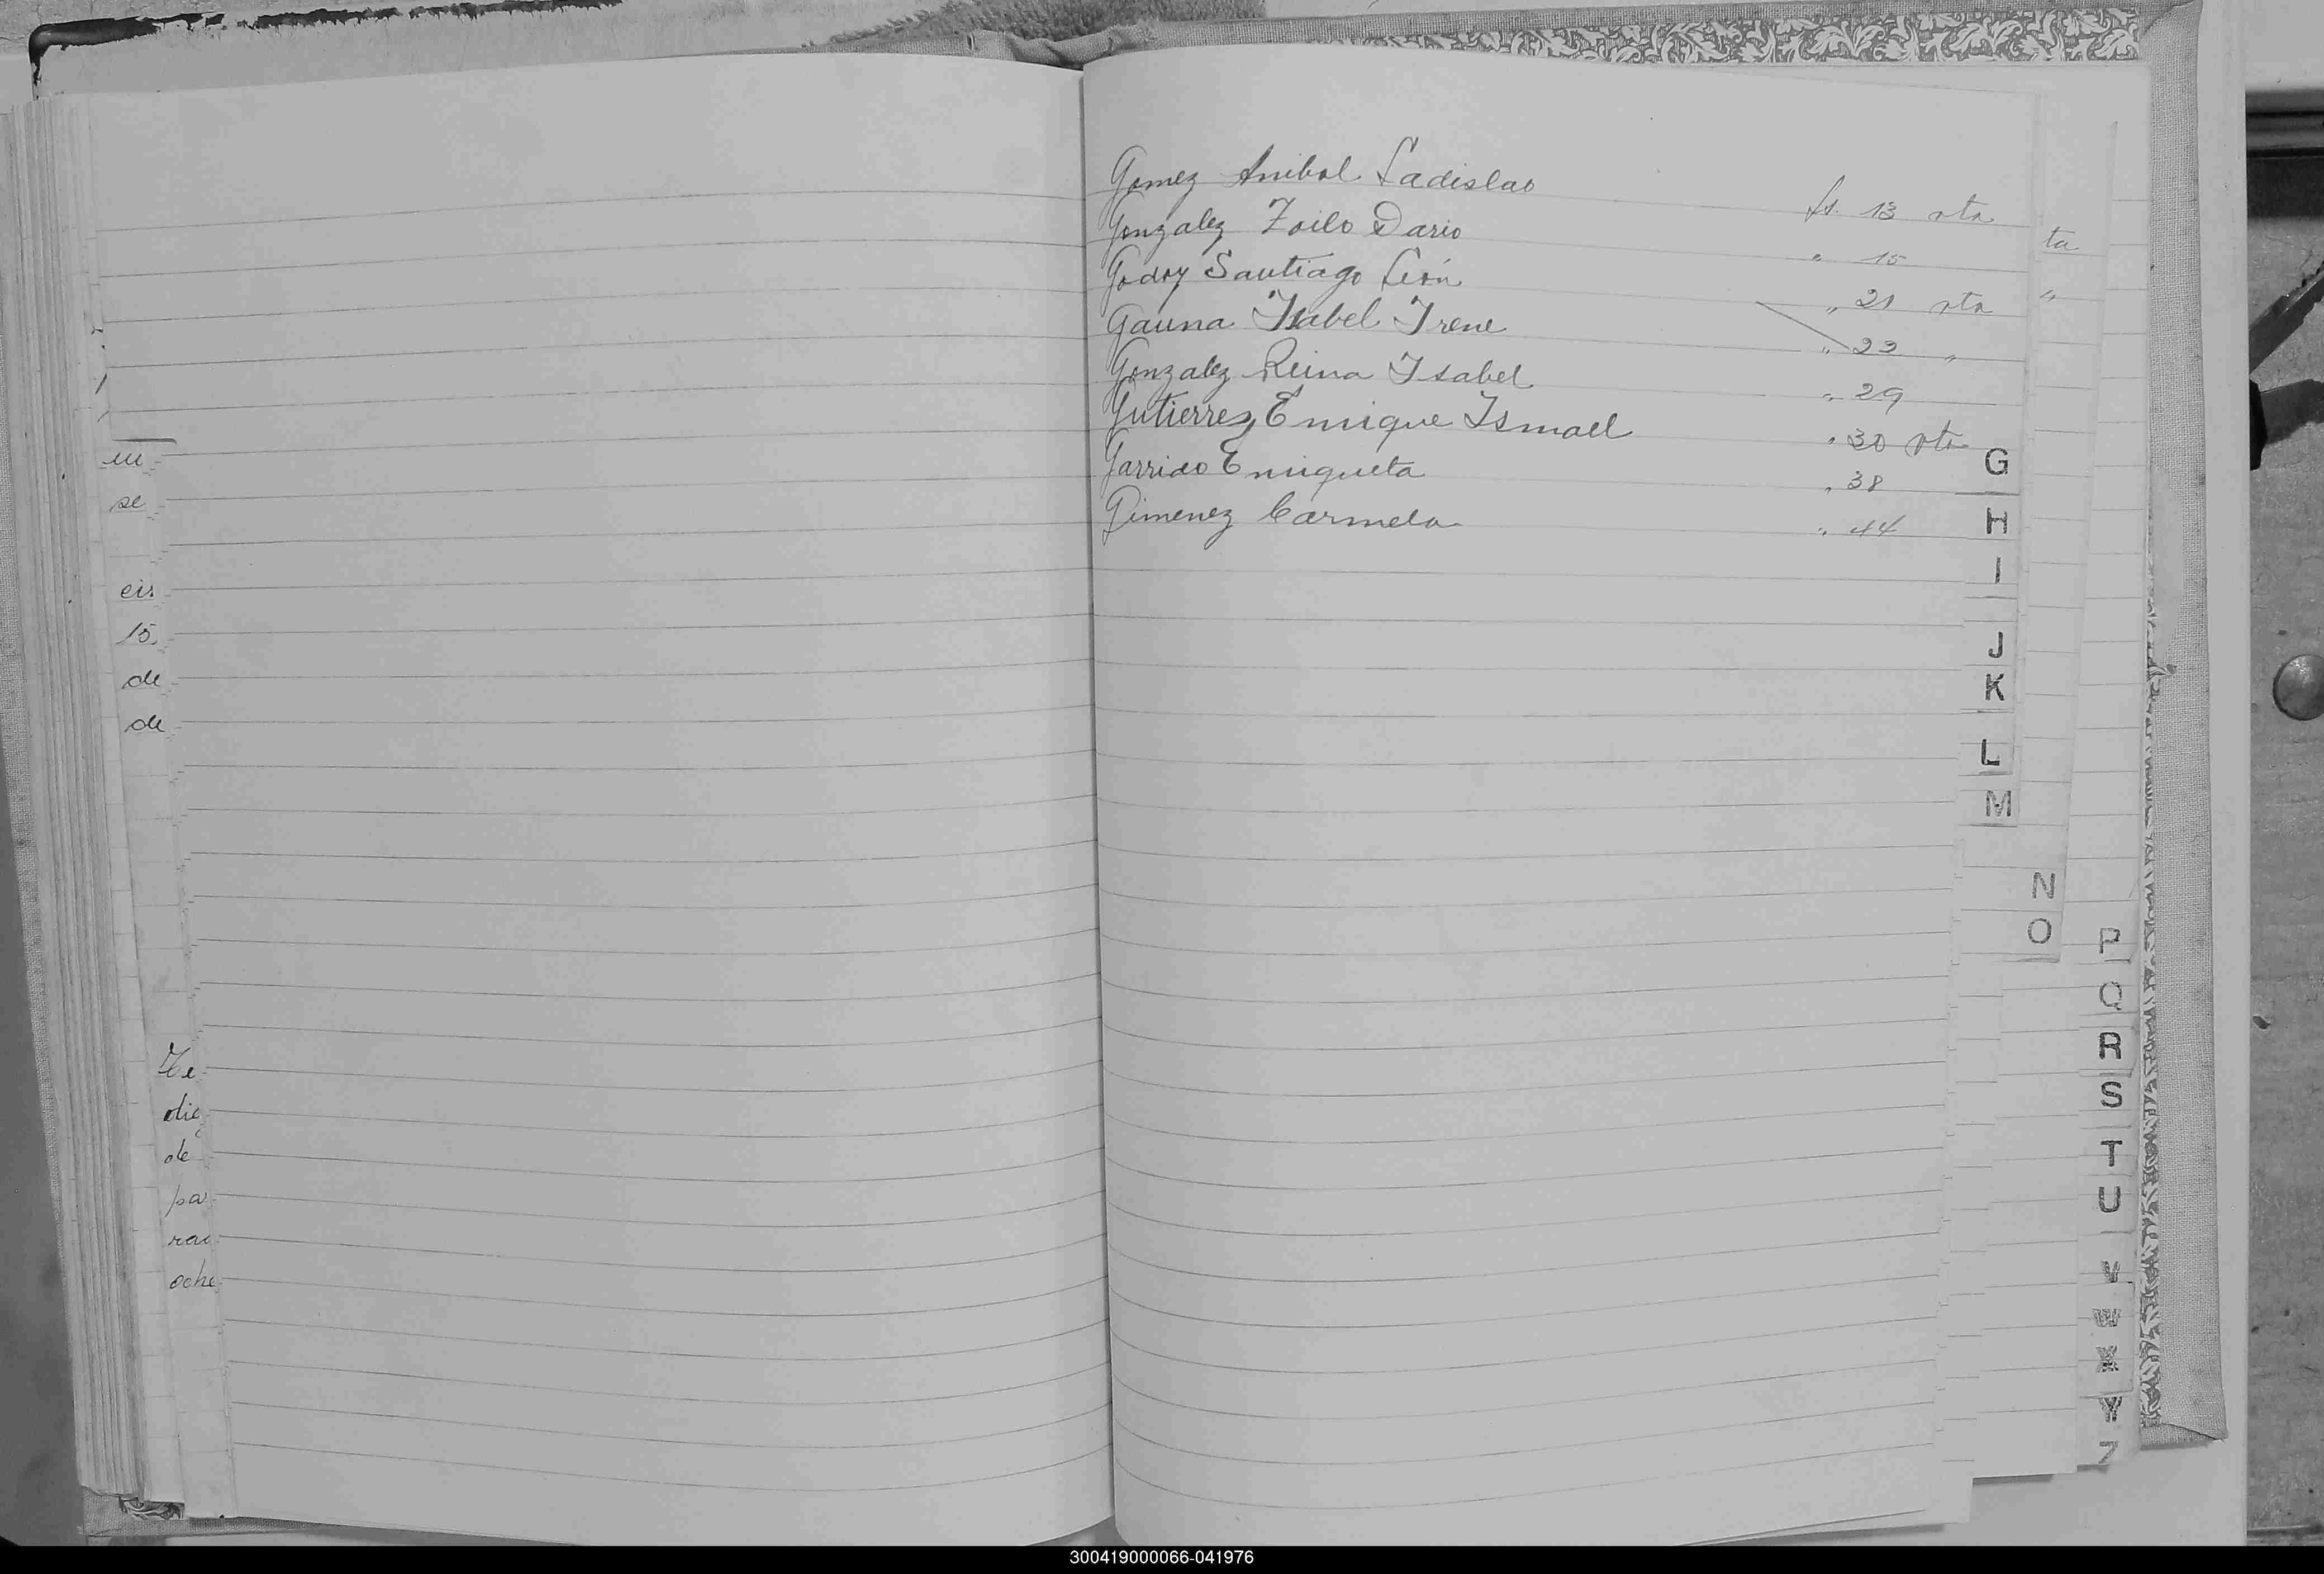 Gomez Anibal Ladislao fs. 13 vta
Gonzalez Zoilo Dario " 15
Godoy Santiago León " 21 vta
Gauna Isabel Irene " 22 "
Gonzalez Reina Isabel " 29
Gutierrez Enrique Ismael " 30 vta
Garrido Enriqueta " 38
Gimenez Carmela " 44
ta
"
G
H
I
J
K
L
M
N
O
P
Q
R
S
T
U
V
W
X
Y
Z
se
eis
15
de
de
die
de
pa
oche
300419000066-041976